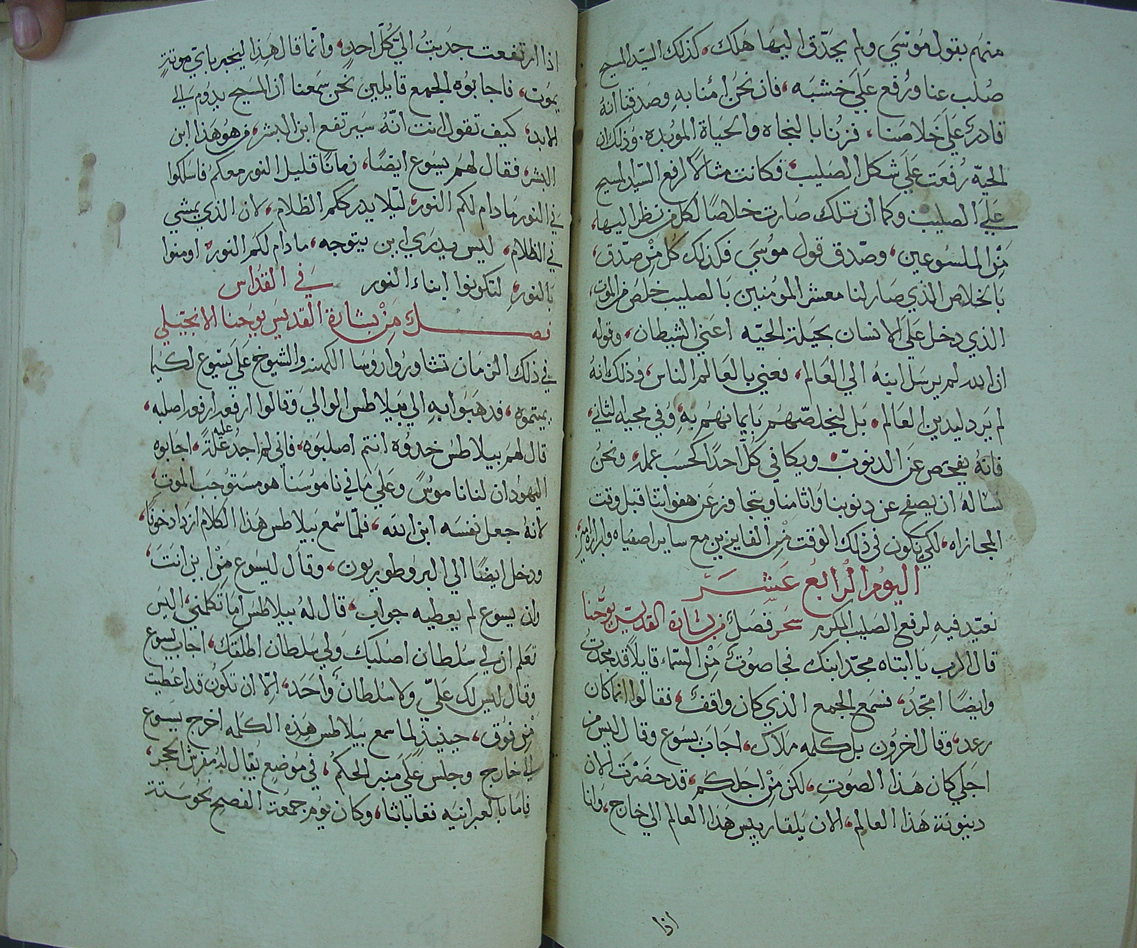 منهم بقول موسي ولم يحدق اليها هلك، كذلك السيد المسيح
صُلب عنا ورُفع علي خشبه، فان نحن امنا به وصدقنا انهُ
قادرٌ علي خلاصنا، فزنا بالنجاه والحياة الموبده، وذلك ان
الحيّه رُفعت علي شكل الصليب، فكانت مثالاً لرفع السيد المسيح
علي الصليب وكما ان تلك صارت خلاصاً لكل من نظر اليها،
من الملسوعين، وصدق قول موسي فكذلك كُل من صدّق،
بالخلاص الذي صار لنا معشر المومنين بالصليب خلص من الموت
الذي دخل علي الانسان بحيلة الحيّه اعني الشيطان، وقوله
ان الله لم يرسل ابنه الي العالم، يعني بالعالم الناس، وذلك انهُ
لم يرد ليدين العالم، بل ليخلصهم بايمانهم به، وفي مجيه الثاني،
فانهُ يفحص عن الدنوب، ويكافي كل احداً كحسب عمله، ونحن
نساله ان يصفح عن دنوبنا واثامنا ويتجاوز عن هفواتنا قبل وقت
المجازاه، لكي نكون في ذلك الوقت من الفايزين مع ساير اصفياه
اليوم الرابع عشر
نعتد فيه لرفع الصليب المكرم سَحَر فصل من بشارة القديس يوحنا
قال الرب يا ابتاه مجّد ابنك فجا صوتٌ من السماء قايلاً قد مجدتُ
وايضاً امجّد، فسمع الجمع الذي كان واقفٌ، فقالوا انما كان
رعد، وقال اخرون بل كلمه ملاك، اجاب يسوع وقال ليس من
اجلي كان هذا الصوت، لكن من اجلكم، قد حضرت الان
دينونة هذا العالم، الان يلقا رييس هذا العالم الي خارج، وانا
اذا
اذا ارتفعت جدبتُ اليّ كُل احدٍ، وانما قال هذا ليخبر باي موتةٍ
يموت، فاجابوه الجمع قايلين نحن سمعنا ان المسيح يدوم الي
الابد، كيف تقول انت انّه سيرتفع ابن البشر، من هو هذا ابن
البشر، فقال لهم يسوع ايضاً، زماناً قليل النور معكم فاسلكوا
في النور ما دام لكم النور، ليلا يدرككم الظلام، لان الذي يمشي
في الظلام، ليس يدري اين يتوجه، ما دام لكم النور، اومنوا
بالنور، لتكونوا ابناء النور في القداس
فصل من بشارة القديس يوحنا الانجيلي
في ذلك الزمان تشاوروا روسا الكهنه والشيوخ علي يسوع لكيما
يميتوه، فدهبوا به الي بيلاطس الوالي وقالوا ارفعه ارفعه اصلبه،
قال لهم بيلاطس خدوه انتم اصلبوه، فاني لم اجد عليه علّةً، اجابوه
اليهود ان لنا ناموسٌ وعلي ما في ناموسنا هو مستوجب الموت،
لانهُ جعل نفسه ابن الله، فلمّا سمع بيلاطس هذا الكلام ازداد خوفاً،
ودخل ايضاً الي الابروطوريون، وقال ليسوع من اين انت،
وان يسوع لم يعطيه جواب، قال لهُ بيلاطس اما تكلمني، اليس
تعلم ان لي سلطان اصلبك ولي سلطان اطلقك، اجاب يسوع
وقال ليس لك عليّ ولا سلطانٌ واحد، الا ان تكون قد اعطيت
من فوق، حينيذٍ لما سمع بيلاطس هذه الكلمه اخرج يسوع
الي خارج وجلس علي منبر الحكم، في موضعٍ يقال له رصيف الحجر،
فاما بالعبرانيه فغاباثا، وكان يوم جمعة الفصح نحو ستة